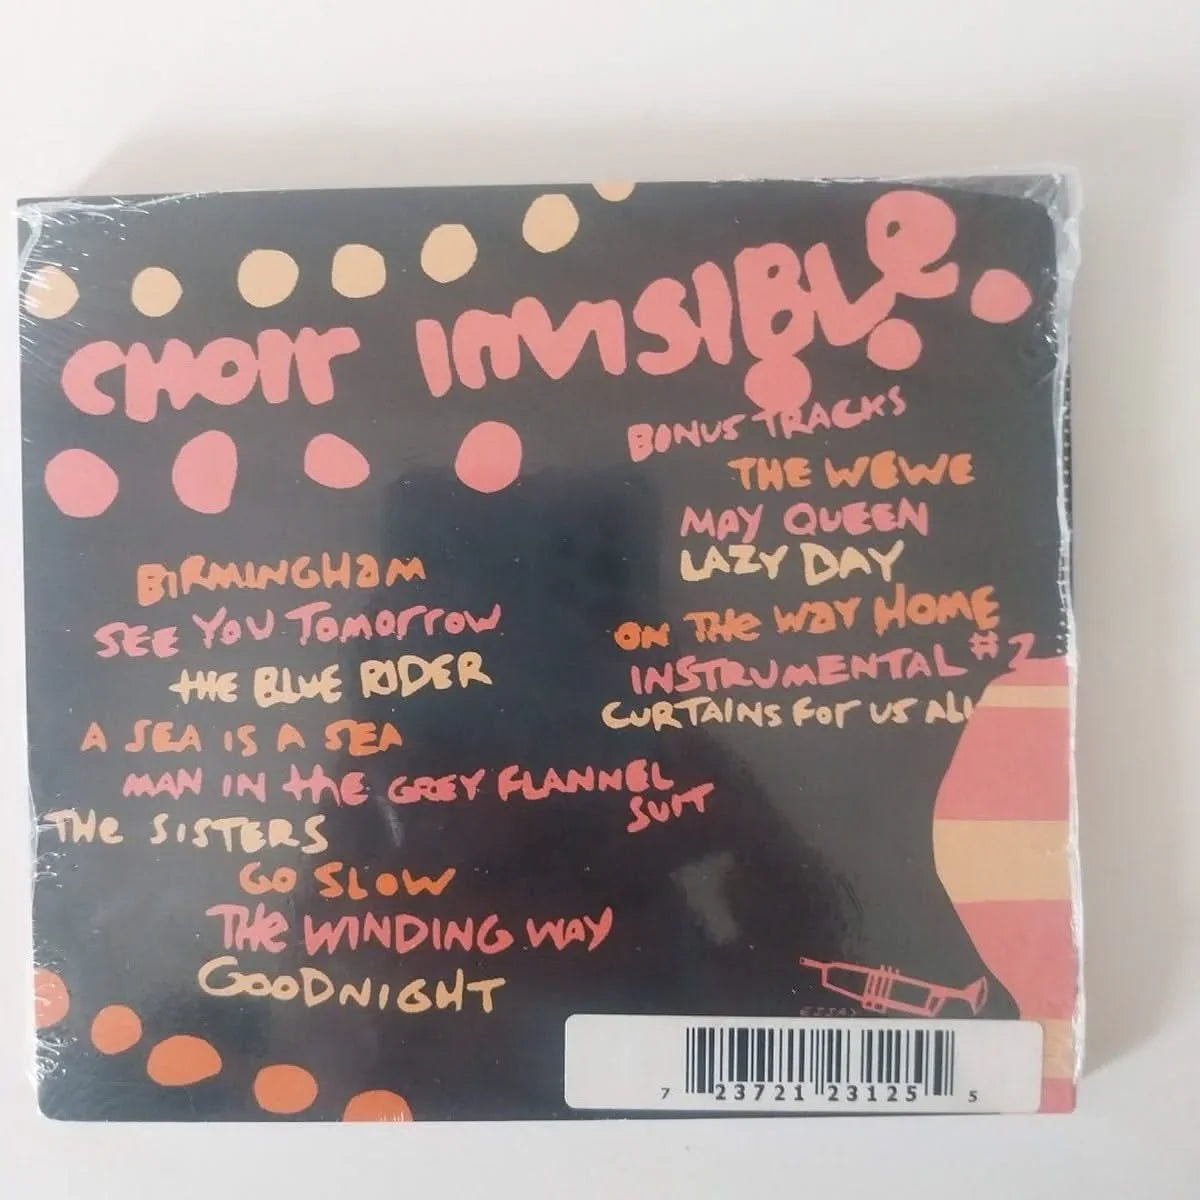 CHOIR INVISIBLE
BIRMINGHAM
SEE YOU TOMORROW
THE BLUE RIDER
A SEA IS A SEA
MAN IN THE GREY FLANNEL
SUIT
THE SISTERS
GO SLOW
THE WINDING WAY
GOODNIGHT
BONUS TRACKS
THE WEWE
MAY QUEEN
LAZY DAY
ON THE WAY HOME
INSTRUMENTAL #2
CURTAINS FOR US ALL
ESSAY
7 23721 23125 5